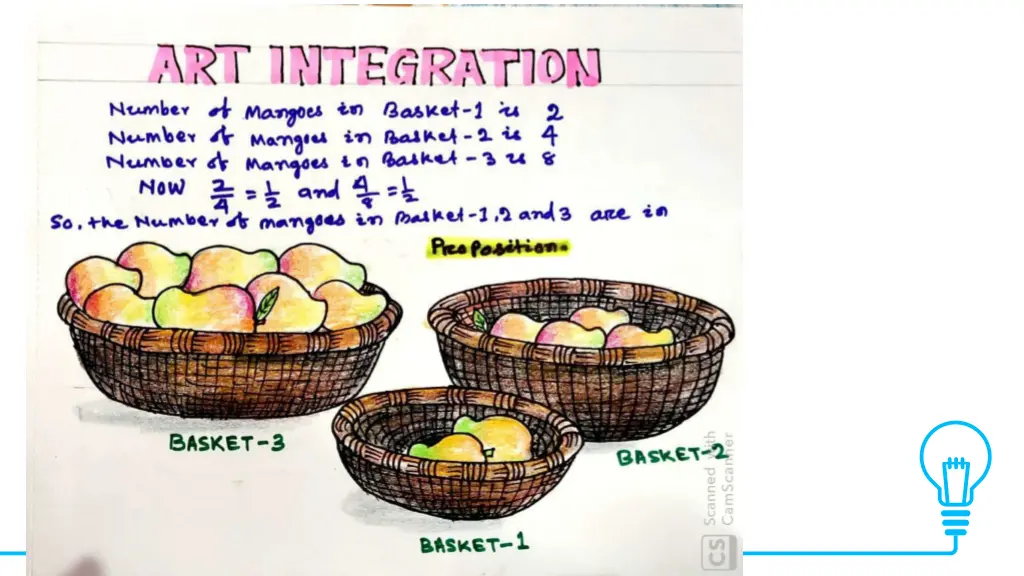 ART INTEGRATION
Number of Mangoes in Basket-1 is 2
Number of Mangoes in Basket-2 is 4
Number of Mangoes in Basket-3 is 8
Now 2/4 = 1/2 and 4/8 = 1/2
So, the Number of mangoes in Basket-1,2 and 3 are in
Proposition.
BASKET-3
BASKET-2
BASKET-1
Scanned with
CamScanner
CS